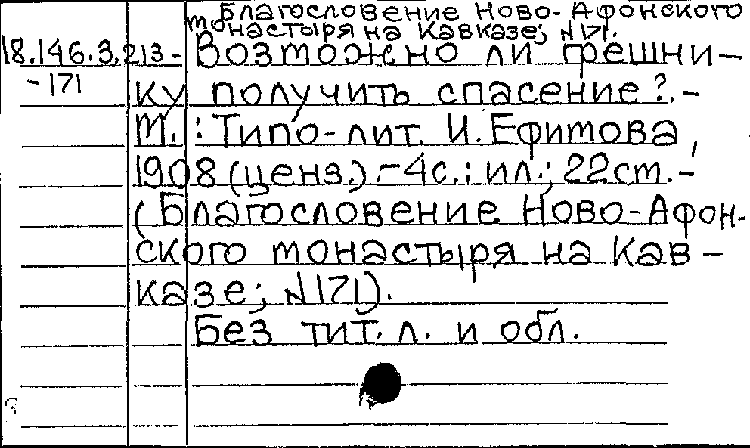 Благословение Ново-Афонского
монастыря на Кавказе; №171.
18.146.3.213- Возможно ли грешни-
-171
ку получить спасение?.-
М.: Типо-лит. И. Ефимова,
1908 (ценз.).-4с.: ил.; 22см.-
(Благословение Ново-Афон-
ского монастыря на Кав-
казе; №171).
Без тит. л. и обл.